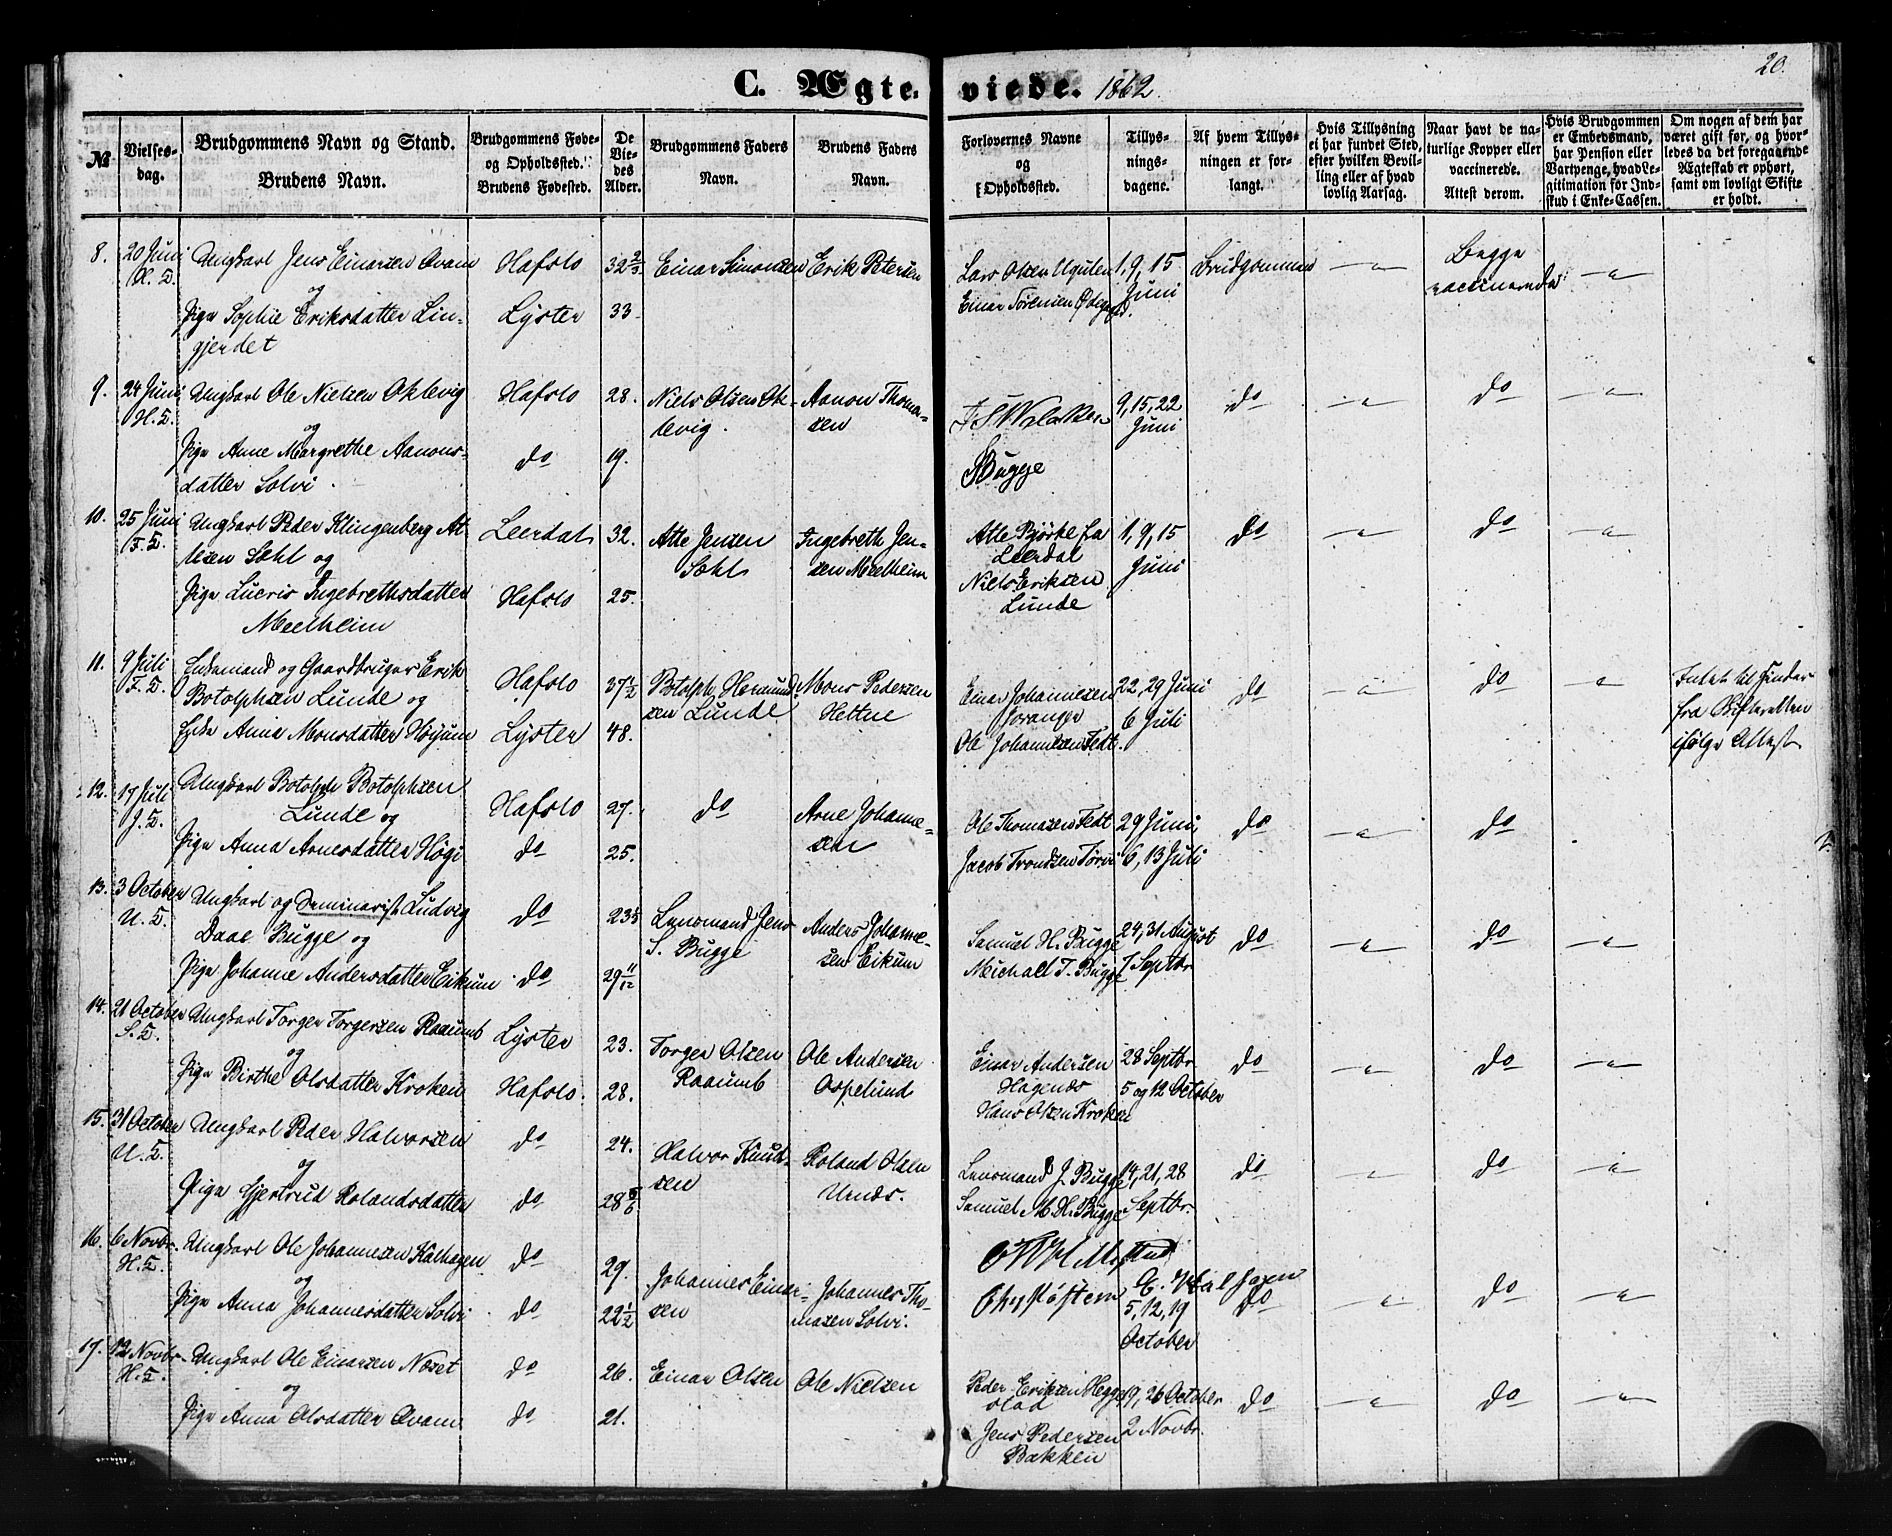 20.
C. Ægte- viede. 1862
№
Vielses-
dag.
Brudgommens Navn og Stand.
Brudens Navn.
Brudgommens Føde-
og Opholdssted.
Brudens Fødested.
De
Vie-
des
Alder.
Brudgommens Faders
Navn.
Brudens Faders
Navn.
Forlovernes Navne
og
Opholdssted.
Tillys-
nings-
dagene.
Af hvem Tillys-
ningen er for-
langt.
Hvis Tillysning
ei har fundet Sted,
efter hvilken Bevil-
ling eller af hvad
lovlig Aarsag.
Naar havt de na-
turlige Kopper eller
vaccinerede.
Attest derom.
Hvis Brudgommen
er Embedsmand,
har Pension eller
Vartpenge, hvad Le-
gitimation for Ind-
skud i Enke-Cassen.
Om nogen af dem har
været gift før, og hvor-
ledes da det foregaaende
Ægteskab er ophørt,
samt om lovligt Skifte
er holdt.
8.
20 Juni
H. K.
Ungkarl Jens Einarsen Qvam
og
Pige Sophie Eriksdatter Lin-
gjerdet
Hafslo
Lyster
32 2/3
33
Einar Simonsen
Erik Petersen
Lars Olsen Ugulen
Einar Sørensen Ødegrd.
1, 9, 15
Juni
Brudgommen
Begge
vaccinerede
9.
24 Juni
H. K.
Ungkarl Ole Nielsen Oklevig
og
Pige Anne Margrethe Aanons-
datter Solvi
Hafslo
do
28.
19.
Niels Olsen Ok-
levig.
Aanon Thoma-
sen
Bugge
9, 15, 22
Juni
do
do
10.
25 Juni
F. K.
Ungkarl Peder Klingenberg At-
lesen Sæhl og
Pige Lucris Ingebrethsdatter
Meelheim
Leerdal
Hafslo
32.
25.
Atle Jensen
Sæhl
Ingebreth Jen-
sen Meelheim
Atle Bjørke fra
Leerdal
Niels Eriksen
Lunde
1, 9, 15
Juni
do
do
11.
9 Juli
F. K.
Enkemand og Gaardbruger Erik
Botolphsen Lunde og
Enke Anna Monsdatter Høijum
Hafslo
Lyster
37 1/2
48.
Botolph Hermund-
sen Lunde
Mons Pedersen
Hettne
Einar Johannesen
Joranger
Ole Johannesen Fedt.
22, 29 Juni
6 Juli
do
do
Intet til Hinder
fra Skifteretten
ifølge Attest
12.
17 Juli
J. K.
Ungkarl Botolph Botolphsen
Lunde og
Pige Anna Arnesdatter Høgi
Hafslo
do
27.
25.
do
Arne Johanne-
sen
Ole Thomasen Fedt
Jacob Trondsen Tørvi
29 Juni,
6, 13 Juli
do
do
13.
3 October
U. K.
Ungkarl og Seminarist Ludvig
Daae Bugge og
Pige Johanne Andersdatter Eikum
do
do
23
29 11/12
Lensmand Jens
S. Bugge
Anders Johanne-
sen Eikum
Samuel H. Bugge
Michall T. Bugge
24, 31 August
7 Septbr.
do
do
14.
21 October
S. K.
Ungkarl Torger Torgersen Raaumb
og
Pige Birthe Olsdatter Kroken
Lyster
Hafslo.
23.
28.
Torger Olsen
Raaumb
Ole Andersen
Ospelund
Einar Andersen
Hagenæs
Hans Olsen Kroken
28 Septbr.
5 og 12 October
do
do
15.
31 October
U. K.
Ungkarl Peder Halvorsen
og
Pige Gjertrud Rolandsdatter
do
do
24.
28 5/6
Halvor Knud-
sen
Roland Olsen
Urnæs.
Lensmand J. Bugge
Samuel M H. Bugge
14, 21, 28
Septbr.
do
do
16.
6 Novbr.
H. K.
Ungkarl Ole Johannesen Kalhagen
og
Pige Anna Johannesdatter Solvi
do
do
29.
22 1/2
Johannes Einar-
sen
Johannes Tho-
masen Solvi.
5, 12, 19
October
do
do
17.
12 Novbr.
H. K.
Ungkarl Ole Einarsen Næset
og
Pige Anna Olsdatter Qvam
do
do
26.
21.
Einar Olsen
Ole Nielsen
Peder Eriksen Hegge-
stad
Jens Pedersen
Bakken
19, 26 October
2 Novbr.
do
do